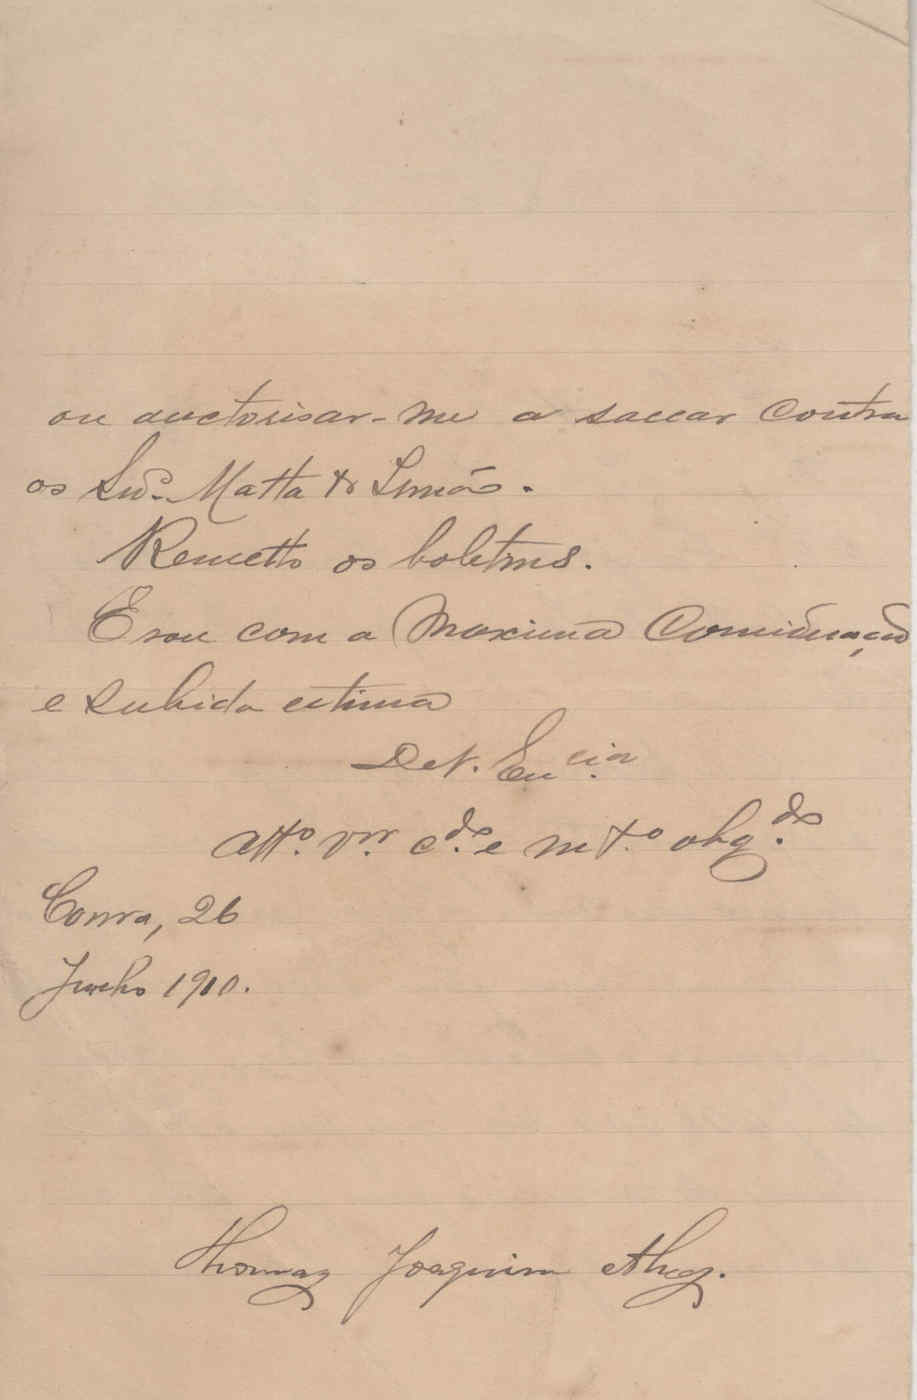 ou auctorisar-me a saccar contra
os Snr.ˢ Matta & Irmão.
Remetto os boletins.
E sou com a maxima Consideração
e subida estima
De V. Ex.cia
Att.º v.or c.do e m.to obg.do
26
Junho 1910.
Thomaz Joaquim